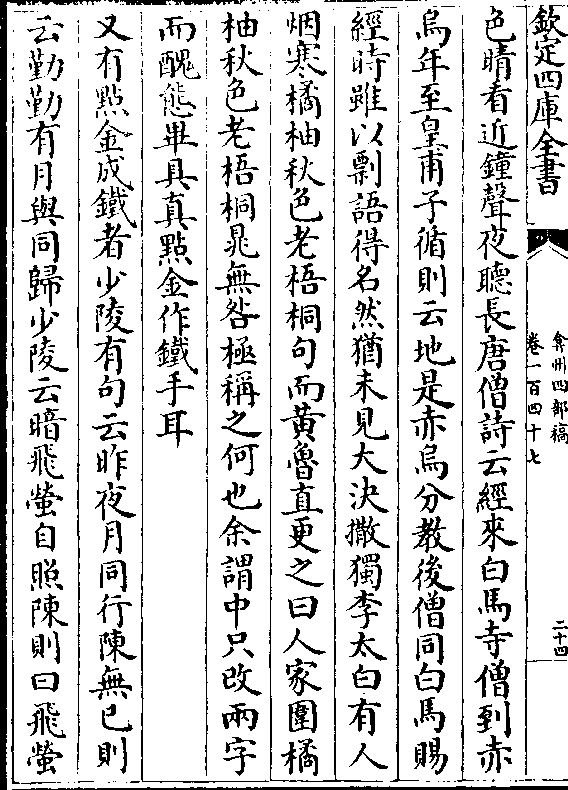 欽定四庫全書
弇州四部稿
卷一百四十七
二十四
色晴看近鐘聲夜聴長唐僧詩云經來白馬寺僧到赤
烏年至皇甫子循則云地是赤烏分教後僧同白馬賜
經時雖以剽語得名然猶未見大決撒獨李太白有人
烟寒橘柚秋色老梧桐句而黄魯直更之曰人家圍橘
柚秋色老梧桐晁無咎極稱之何也余謂中只改兩字
而醜態畢具真點金作鐵手耳
又有點金成鐵者少陵有句云昨夜月同行陳無已則
云勤勤有月與同歸少陵云暗飛螢自照陳則曰飛螢